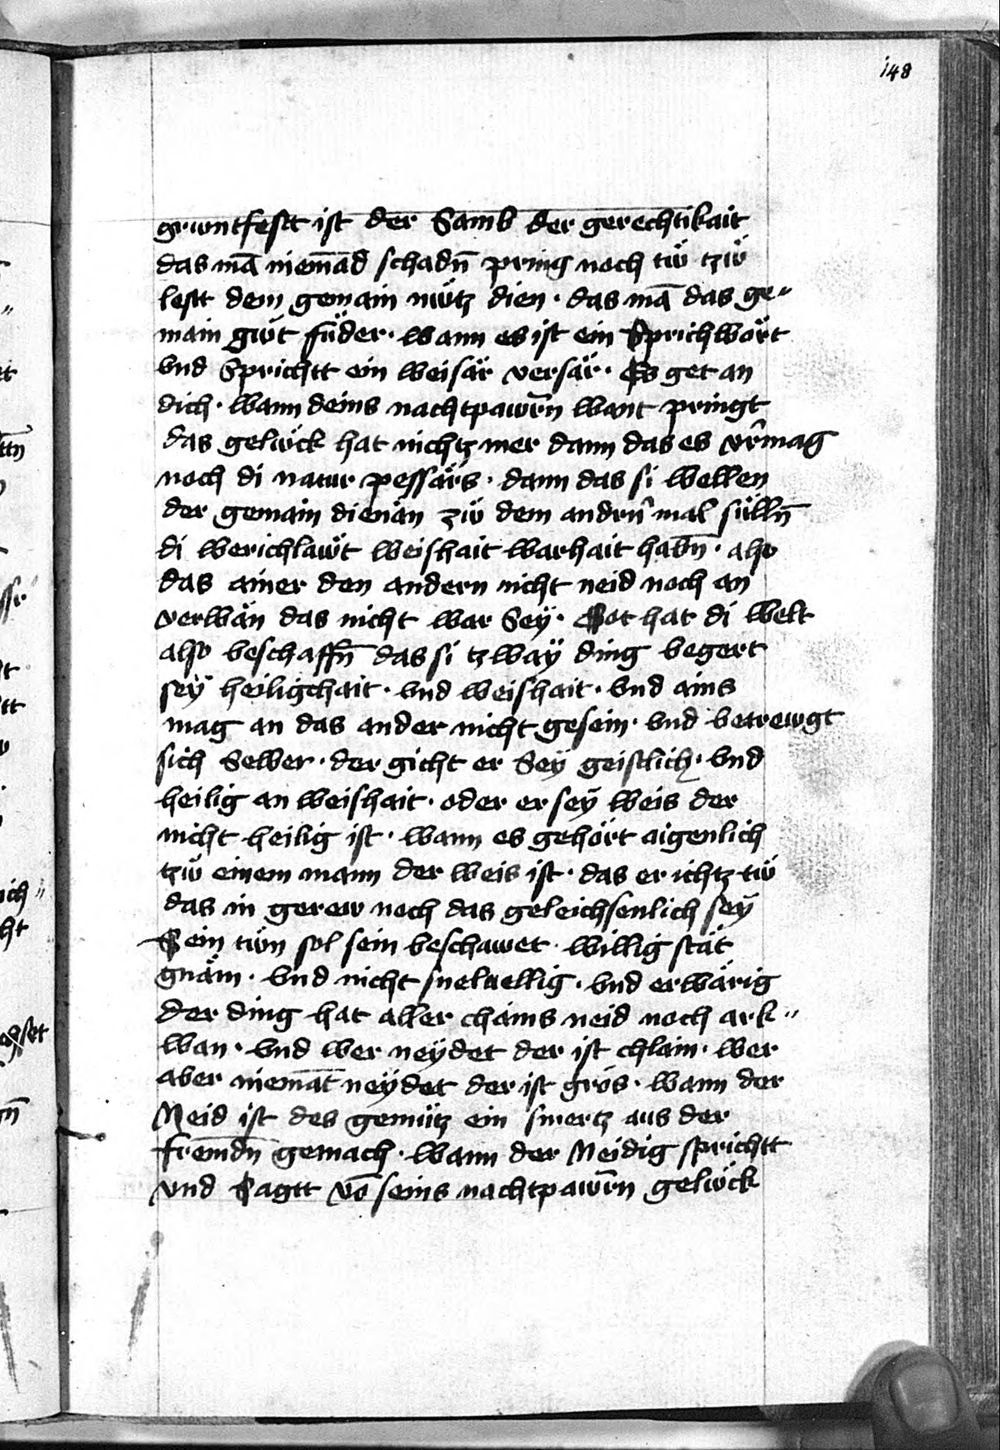 148
gruntfestt ist der Samb der gerechtikait
das mā niemād schadn̄ pring noch tuͤ tzuͤ
lestt dem gemain nuͤtz dien · das mā das ge〃
main guͤt fuͤder · wann es ist ein Sprichwoͤrt
vnd Sprichtt ein weisaͤr versaͤr · Es get an
dich · wann deins nachtpawrn̄ want pringt
das geluͤck hat nichtz mer dann das es vr̄mag
noch di natur pessaͤrs · dann das si wellen
der gemain dienan zuͤ dem andrn̄ mal suͤlln̄
di werichlaͤwt weishait warhait habn̄ · also
das ainer den andern nicht neid noch an
verwaͤn das nicht war Seÿ · Got hat di welt
also beschaffn̄ das si tzwaÿ ding begert
seÿ heiligchait · vnd weishait · vnd ains
mag an das ander nicht gesein · vnd betrewgt
sich Selber · der gicht er Seÿ geistlich · vnd
heilig an weishait · oder er seÿ weis der
nicht heilig ist · wann es gehoͤrt aigenlich
tzuͤ einem mann der weis ist · das er ichtz tuͤ
das in gerew noch das geleichsenlich seÿ
Sein tuͤn sol sein beschawet · willig staͤt
gnaͤm · vnd nicht snelvellig · vnd erwaͤrig
der ding hat aller chains neid noch ark〃
wan · vnd wer neÿdet der ist chlain · wer
aber niemāt neÿdet der ist gros · wann der
Neid ist des gemuͤtz ein smertz aus der
fremdn̄ gemach · wann der Neidig sprichtt
vnd Sagtt vō seins nachtpawrn̄ geluͤck